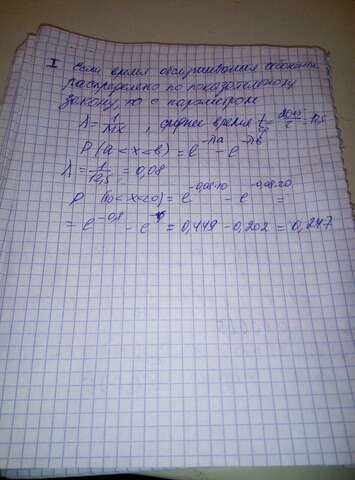 I Если время обслуживания абонента
распределено по показательному
закону, то с параметром
λ = 1/MX, среднее время t_ср = = 12,5
P(a<x<b) = e^{-λa} - e^{-λb}
λ = 1/12,5 = 0,08
P (10<x<20) = e^{-0,08·10} - e^{-0,08·20} =
= e^{-0,8} - e = 0,449 - 0,202 = 0,247